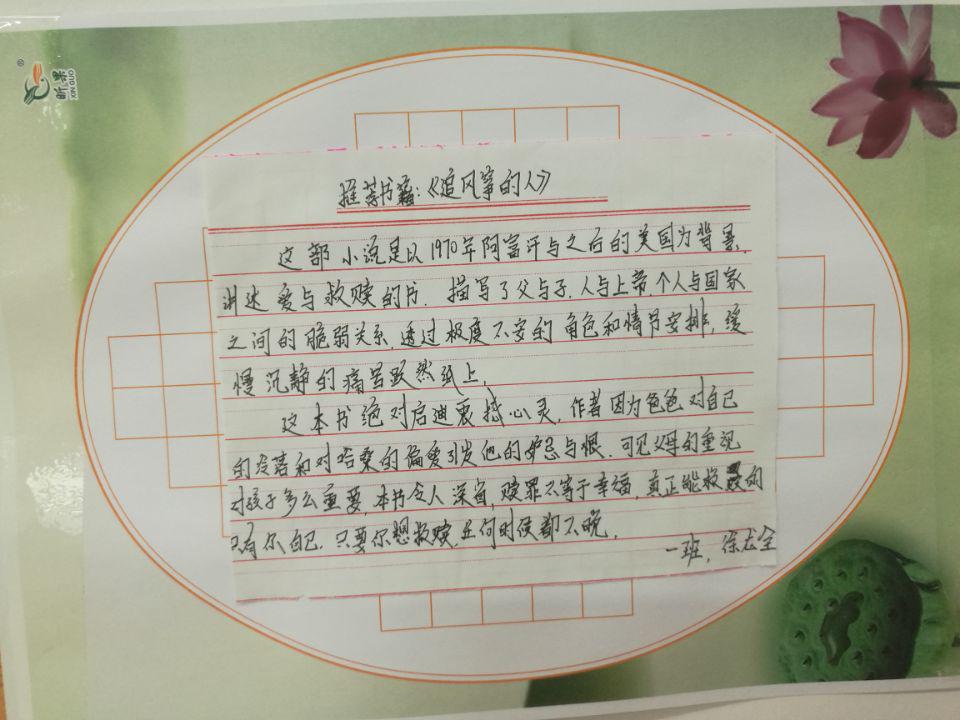 昕果
XIN GUO
®
推荐书籍:《追风筝的人》
这部小说是以1970年阿富汗与之后的美国为背景,
讲述爱与救赎的书.描写了父与子.人与上帝.个人与国家
之间的脆弱关系,透过极度不安的角色和情节安排,缓
慢沉静的痛苦跃然纸上.
这本书绝对启迪震撼心灵.作者因为爸爸对自己
的冷落和对哈桑的偏爱引发他的妒忌与恨.可见父母的重视
对孩子多么重要.本书令人深省,赎罪不等于幸福,真正能救赎的
只有你自己.只要你想救赎,任何时候都不晚.
一班,徐龙全